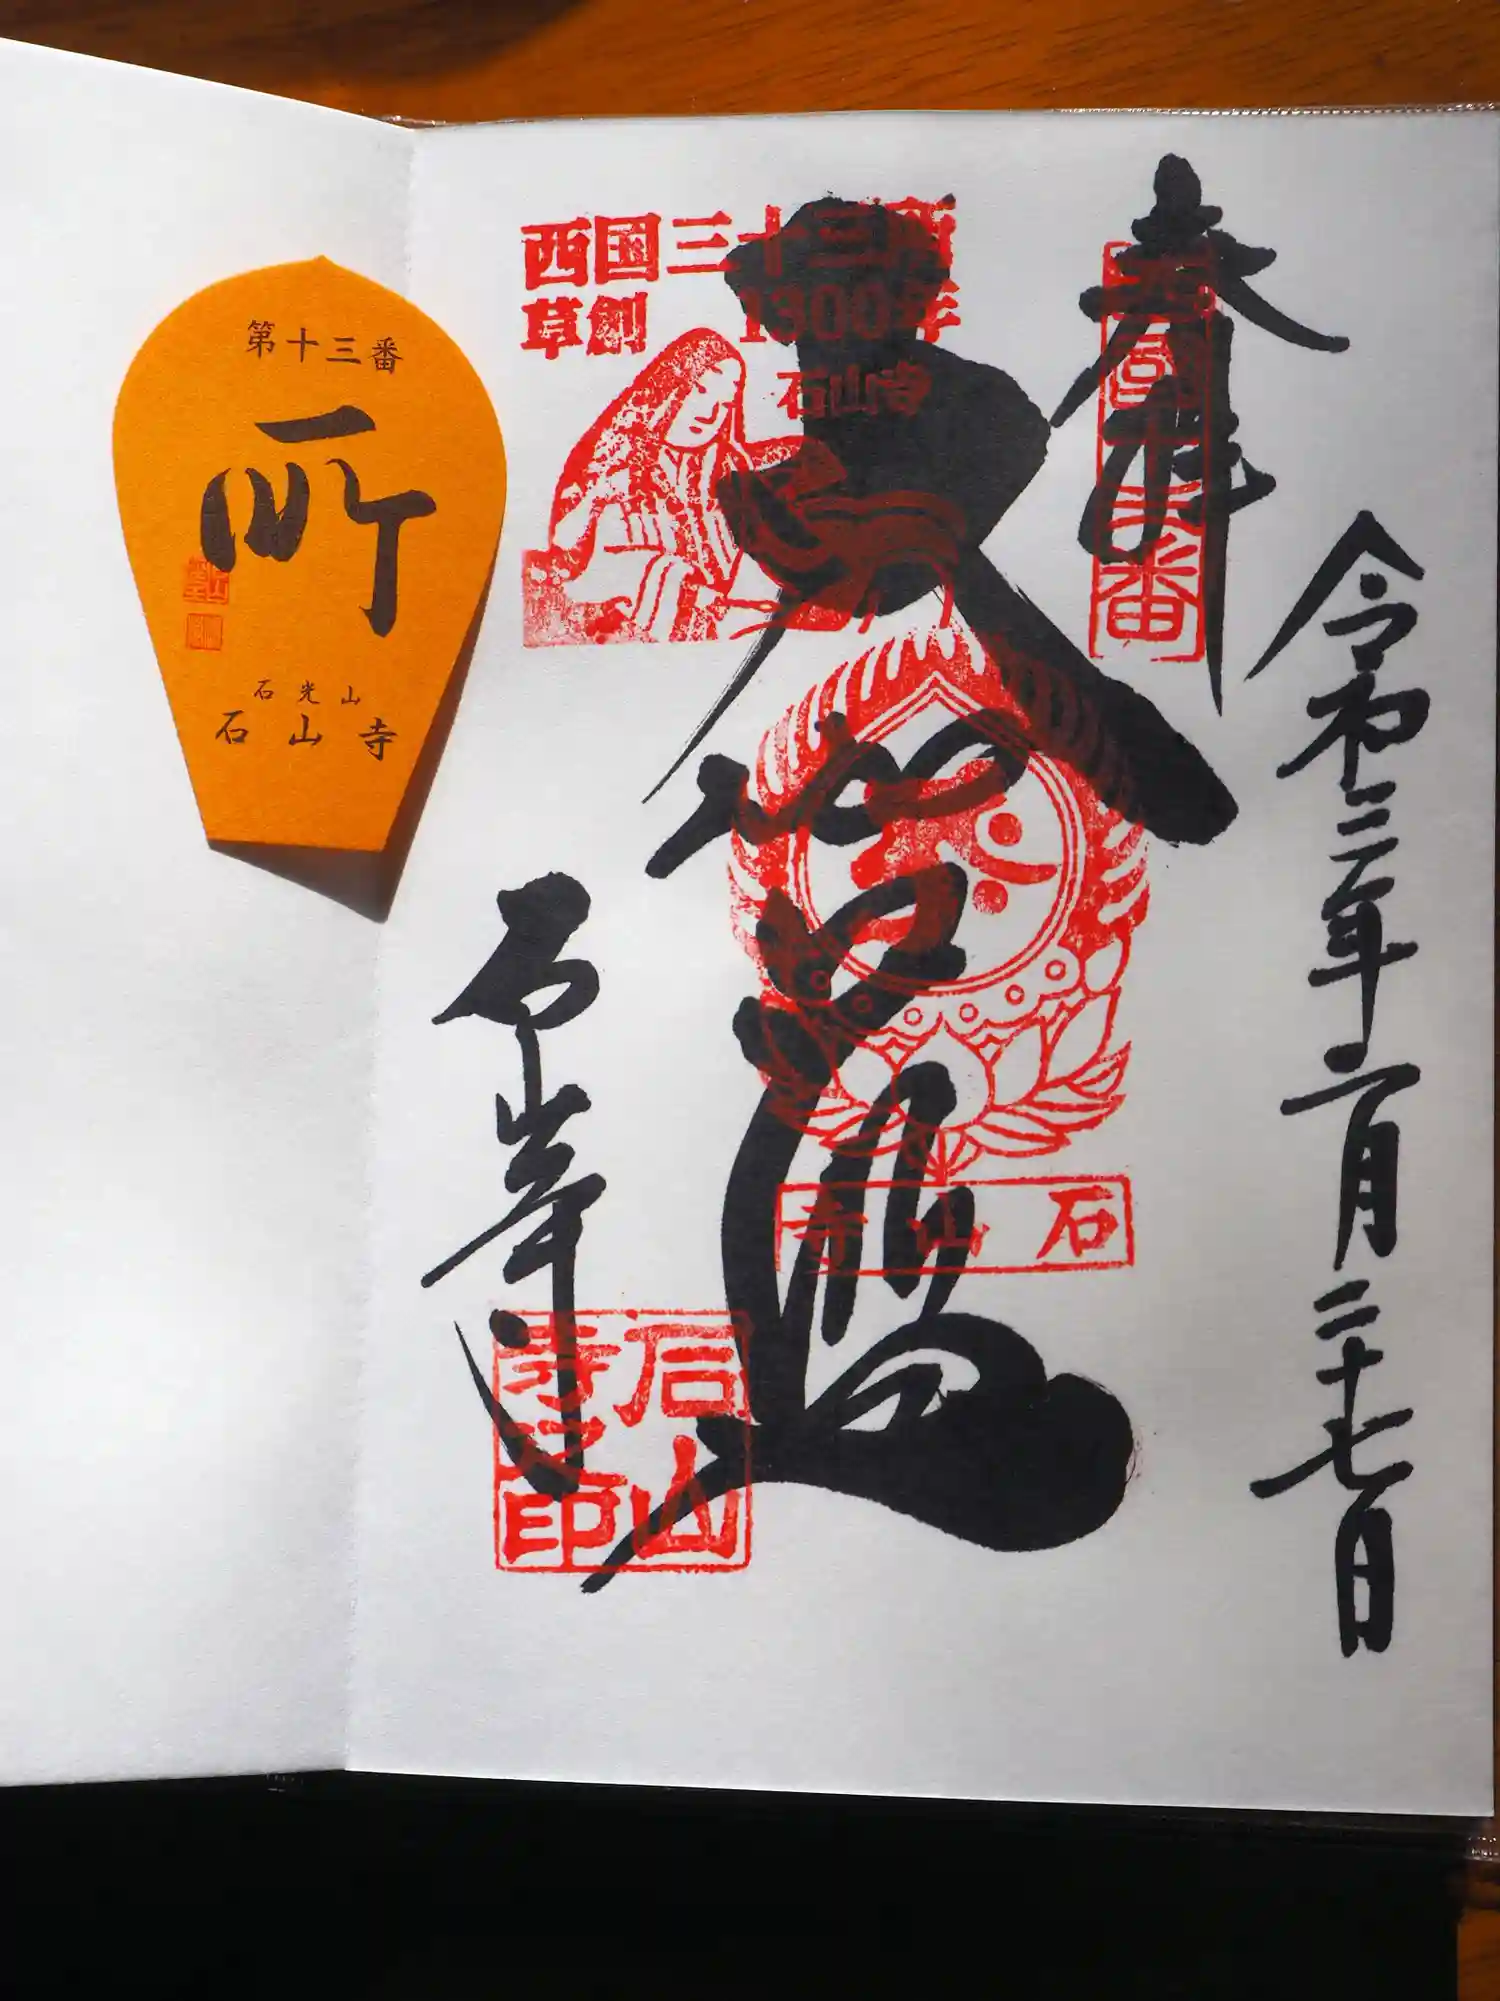 奉拝
西国十三番
令和三年二月二十七日
西国三十三所
草創 1300年
石山寺
大伽藍
石山寺
石山寺
石山寺之印
第十三番
所
石光山
石山寺